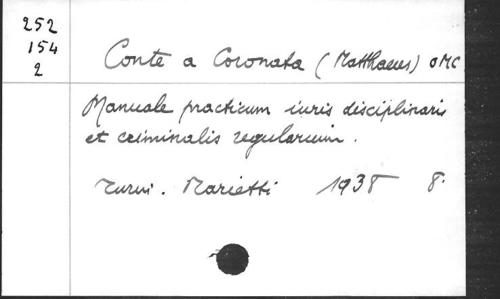 252
154
2
Conte a Coronata (Matthaeus) OMC
Manuale practicum iuris disciplinaris
et criminalis regularium.
Turin. Marietti 1938 8.